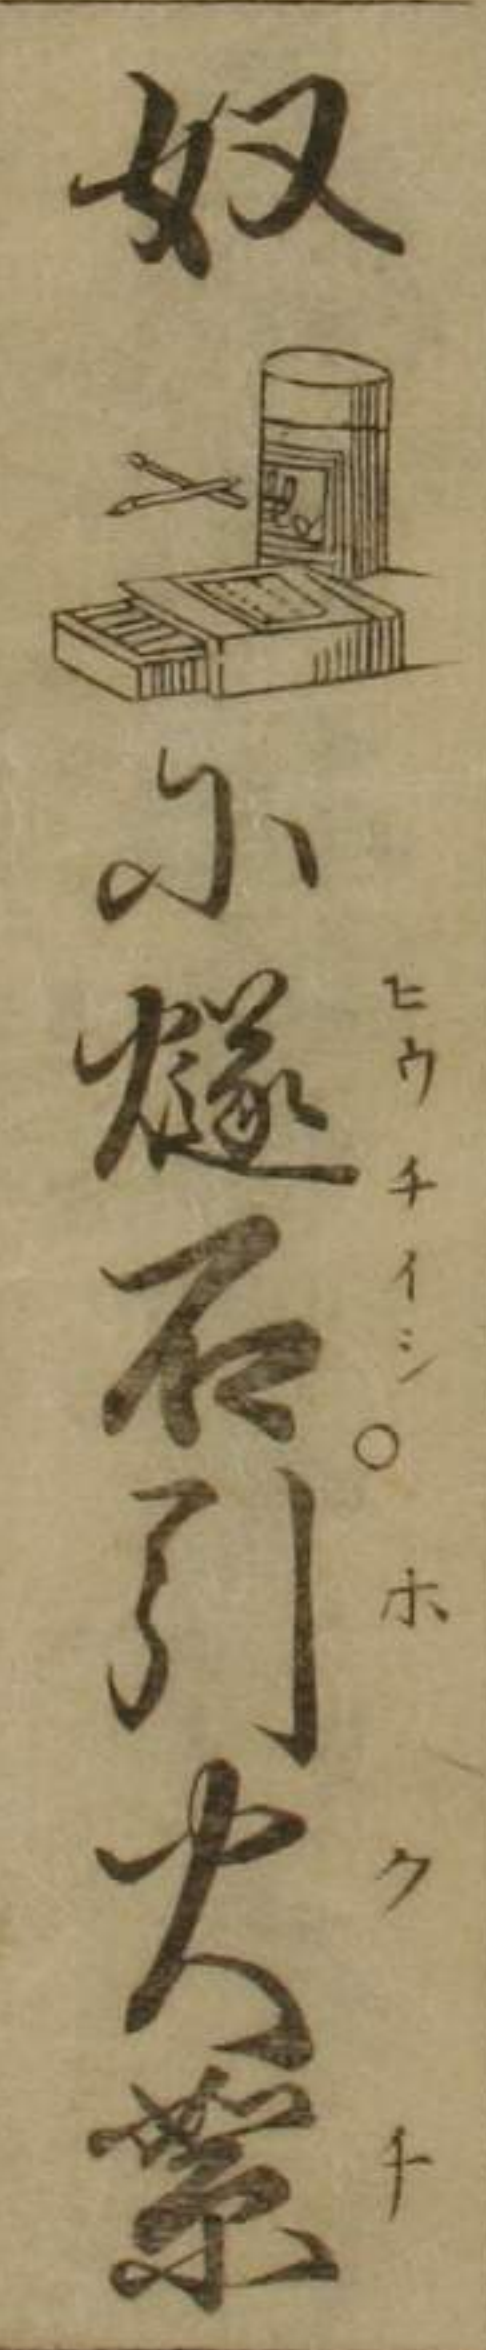 奴
小燧石引火絮
ヒウチイシ○ホクチ